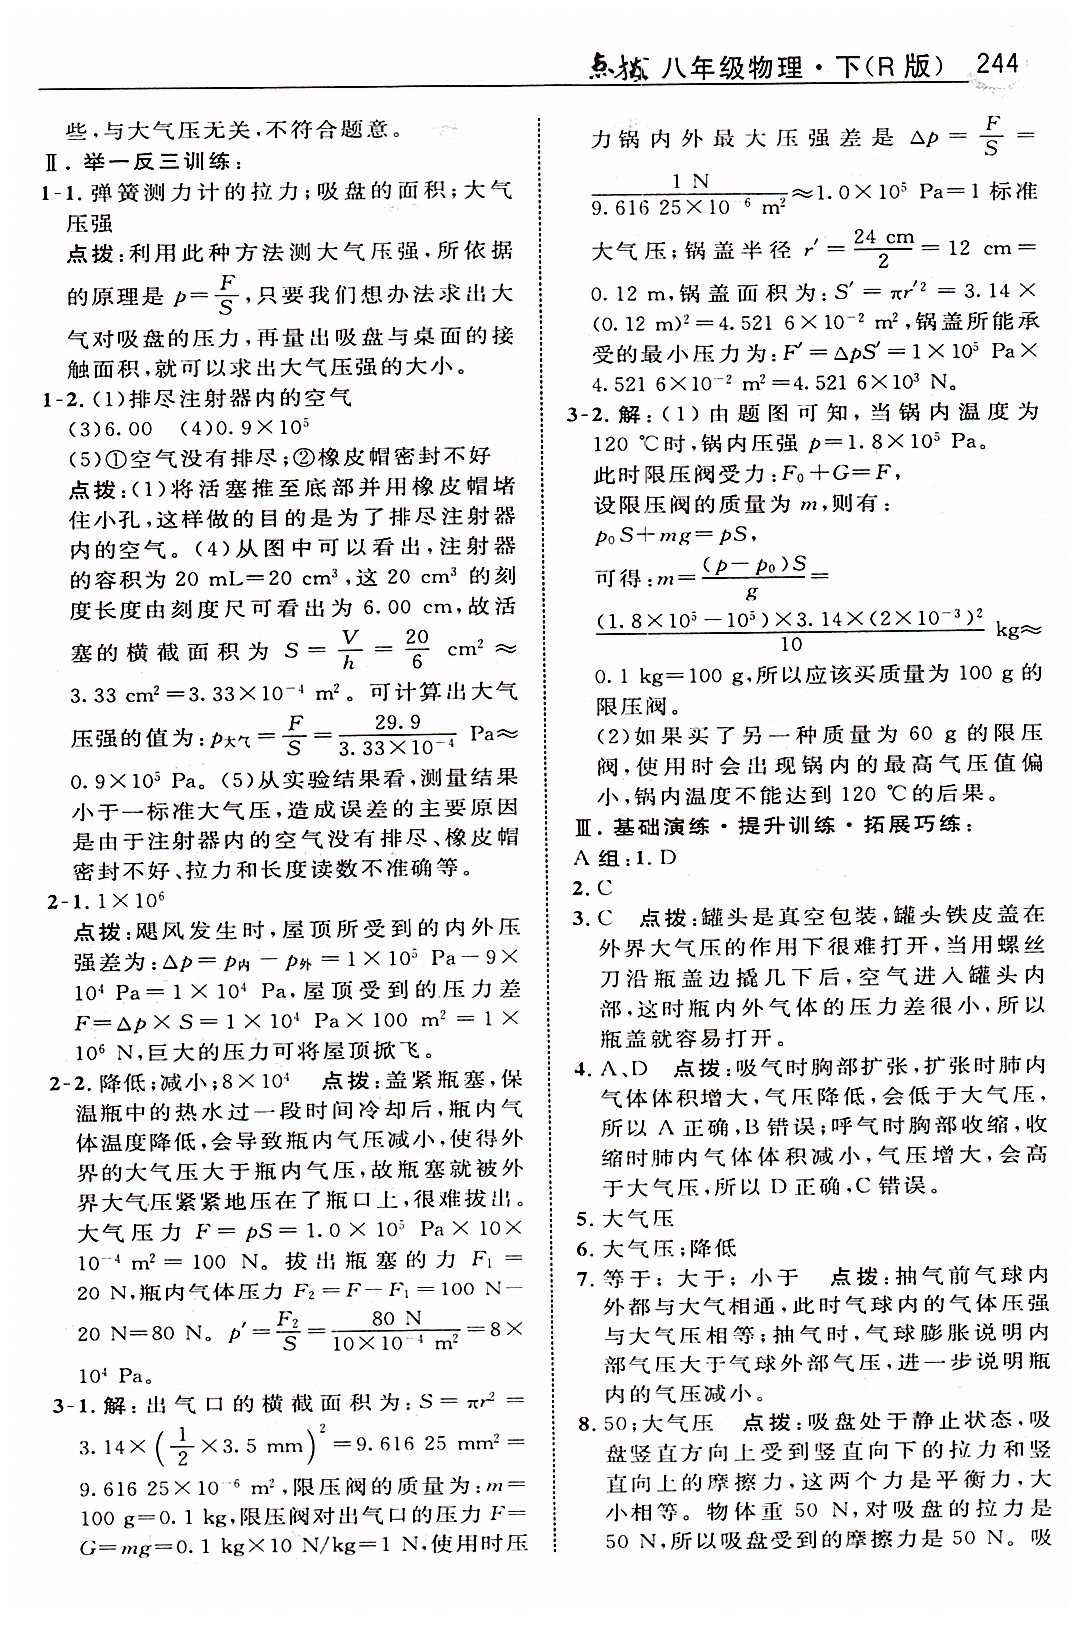 点拨 八年级物理·下(R版) 244
些,与大气压无关,不符合题意。
Ⅱ. 举一反三训练:
1-1. 弹簧测力计的拉力;吸盘的面积;大气
压强
点拨:利用此种方法测大气压强,所依据
的原理是 p=F/S,只要我们想办法求出大
气对吸盘的压力,再量出吸盘与桌面的接
触面积,就可以求出大气压强的大小。
1-2. (1)排尽注射器内的空气
(3)6.00 (4)0.9×10⁵
(5)①空气没有排尽;②橡皮帽密封不好
点拨:(1)将活塞推至底部并用橡皮帽堵
住小孔,这样做的目的是为了排尽注射器
内的空气。(4)从图中可以看出,注射器
的容积为 20 mL=20 cm³,这 20 cm³ 的刻
度长度由刻度尺可看出为 6.00 cm,故活
塞的横截面积为 S=V/h=20/6 cm²≈
3.33 cm²=3.33×10⁻⁴ m²。可计算出大气
压强的值为:p大气=F/S=29.9/(3.33×10⁻⁴) Pa≈
0.9×10⁵ Pa。(5)从实验结果看,测量结果
小于一标准大气压,造成误差的主要原因
是由于注射器内的空气没有排尽、橡皮帽
密封不好、拉力和长度读数不准确等。
2-1. 1×10⁶
点拨:飓风发生时,屋顶所受到的内外压
强差为:Δp=p内-p外=1×10⁵ Pa-9×
10⁴ Pa=1×10⁴ Pa,屋顶受到的压力差
F=Δp×S=1×10⁴ Pa×100 m²=1×
10⁶ N,巨大的压力可将屋顶掀飞。
2-2. 降低;减小;8×10⁴ 点拨:盖紧瓶塞,保
温瓶中的热水过一段时间冷却后,瓶内气
体温度降低,会导致瓶内气压减小,使得外
界的大气压大于瓶内气压,故瓶塞就被外
界大气压紧紧地压在了瓶口上,很难拔出。
大气压力 F=pS=1.0×10⁵ Pa×10×
10⁻⁴ m²=100 N。拔出瓶塞的力 F₁=
20 N,瓶内气体压力 F₂=F-F₁=100 N-
20 N=80 N。p′=F₂/S=80 N/(10×10⁻⁴ m²)=8×
10⁴ Pa。
3-1. 解:出气口的横截面积为:S=πr²=
3.14×(1/2×3.5 mm)²=9.616 25 mm²=
9.616 25×10⁻⁶ m²,限压阀的质量为:m=
100 g=0.1 kg,限压阀对出气口的压力 F=
G=mg=0.1 kg×10 N/kg=1 N,使用时压
力锅内外最大压强差是 Δp=F/S=
1 N/(9.616 25×10⁻⁶ m²)≈1.0×10⁵ Pa=1 标准
大气压;锅盖半径 r′=24 cm/2=12 cm=
0.12 m,锅盖面积为:S′=πr′²=3.14×
(0.12 m)²=4.521 6×10⁻² m²,锅盖所能承
受的最小压力为:F′=ΔpS′=1×10⁵ Pa×
4.521 6×10⁻² m²=4.521 6×10³ N。
3-2. 解:(1)由题图可知,当锅内温度为
120 ℃时,锅内压强 p=1.8×10⁵ Pa。
此时限压阀受力:F₀+G=F,
设限压阀的质量为 m,则有:
p₀S+mg=pS,
可得:m=(p-p₀)S/g=
(1.8×10⁵-10⁵)×3.14×(2×10⁻³)²/10 kg≈
0.1 kg=100 g,所以应该买质量为 100 g 的
限压阀。
(2)如果买了另一种质量为 60 g 的限压
阀,使用时会出现锅内的最高气压值偏
小,锅内温度不能达到 120 ℃的后果。
Ⅲ. 基础演练·提升训练·拓展巧练:
A 组:1. D
2. C
3. C 点拨:罐头是真空包装,罐头铁皮盖在
外界大气压的作用下很难打开,当用螺丝
刀沿瓶盖边撬几下后,空气进入罐头内
部,这时瓶内外气体的压力差很小,所以
瓶盖就容易打开。
4. A、D 点拨:吸气时胸部扩张,扩张时肺内
气体体积增大,气压降低,会低于大气压,
所以 A 正确,B 错误;呼气时胸部收缩,收
缩时肺内气体体积减小,气压增大,会高
于大气压,所以 D 正确,C 错误。
5. 大气压
6. 大气压;降低
7. 等于;大于;小于 点拨:抽气前气球内
外都与大气相通,此时气球内的气体压强
与大气压相等;抽气时,气球膨胀说明内
部气压大于气球外部气压,进一步说明瓶
内的气压减小。
8. 50;大气压 点拨:吸盘处于静止状态,吸
盘竖直方向上受到竖直向下的拉力和竖
直向上的摩擦力,这两个力是平衡力,大
小相等。物体重 50 N,对吸盘的拉力是
50 N,所以吸盘受到的摩擦力是 50 N。吸